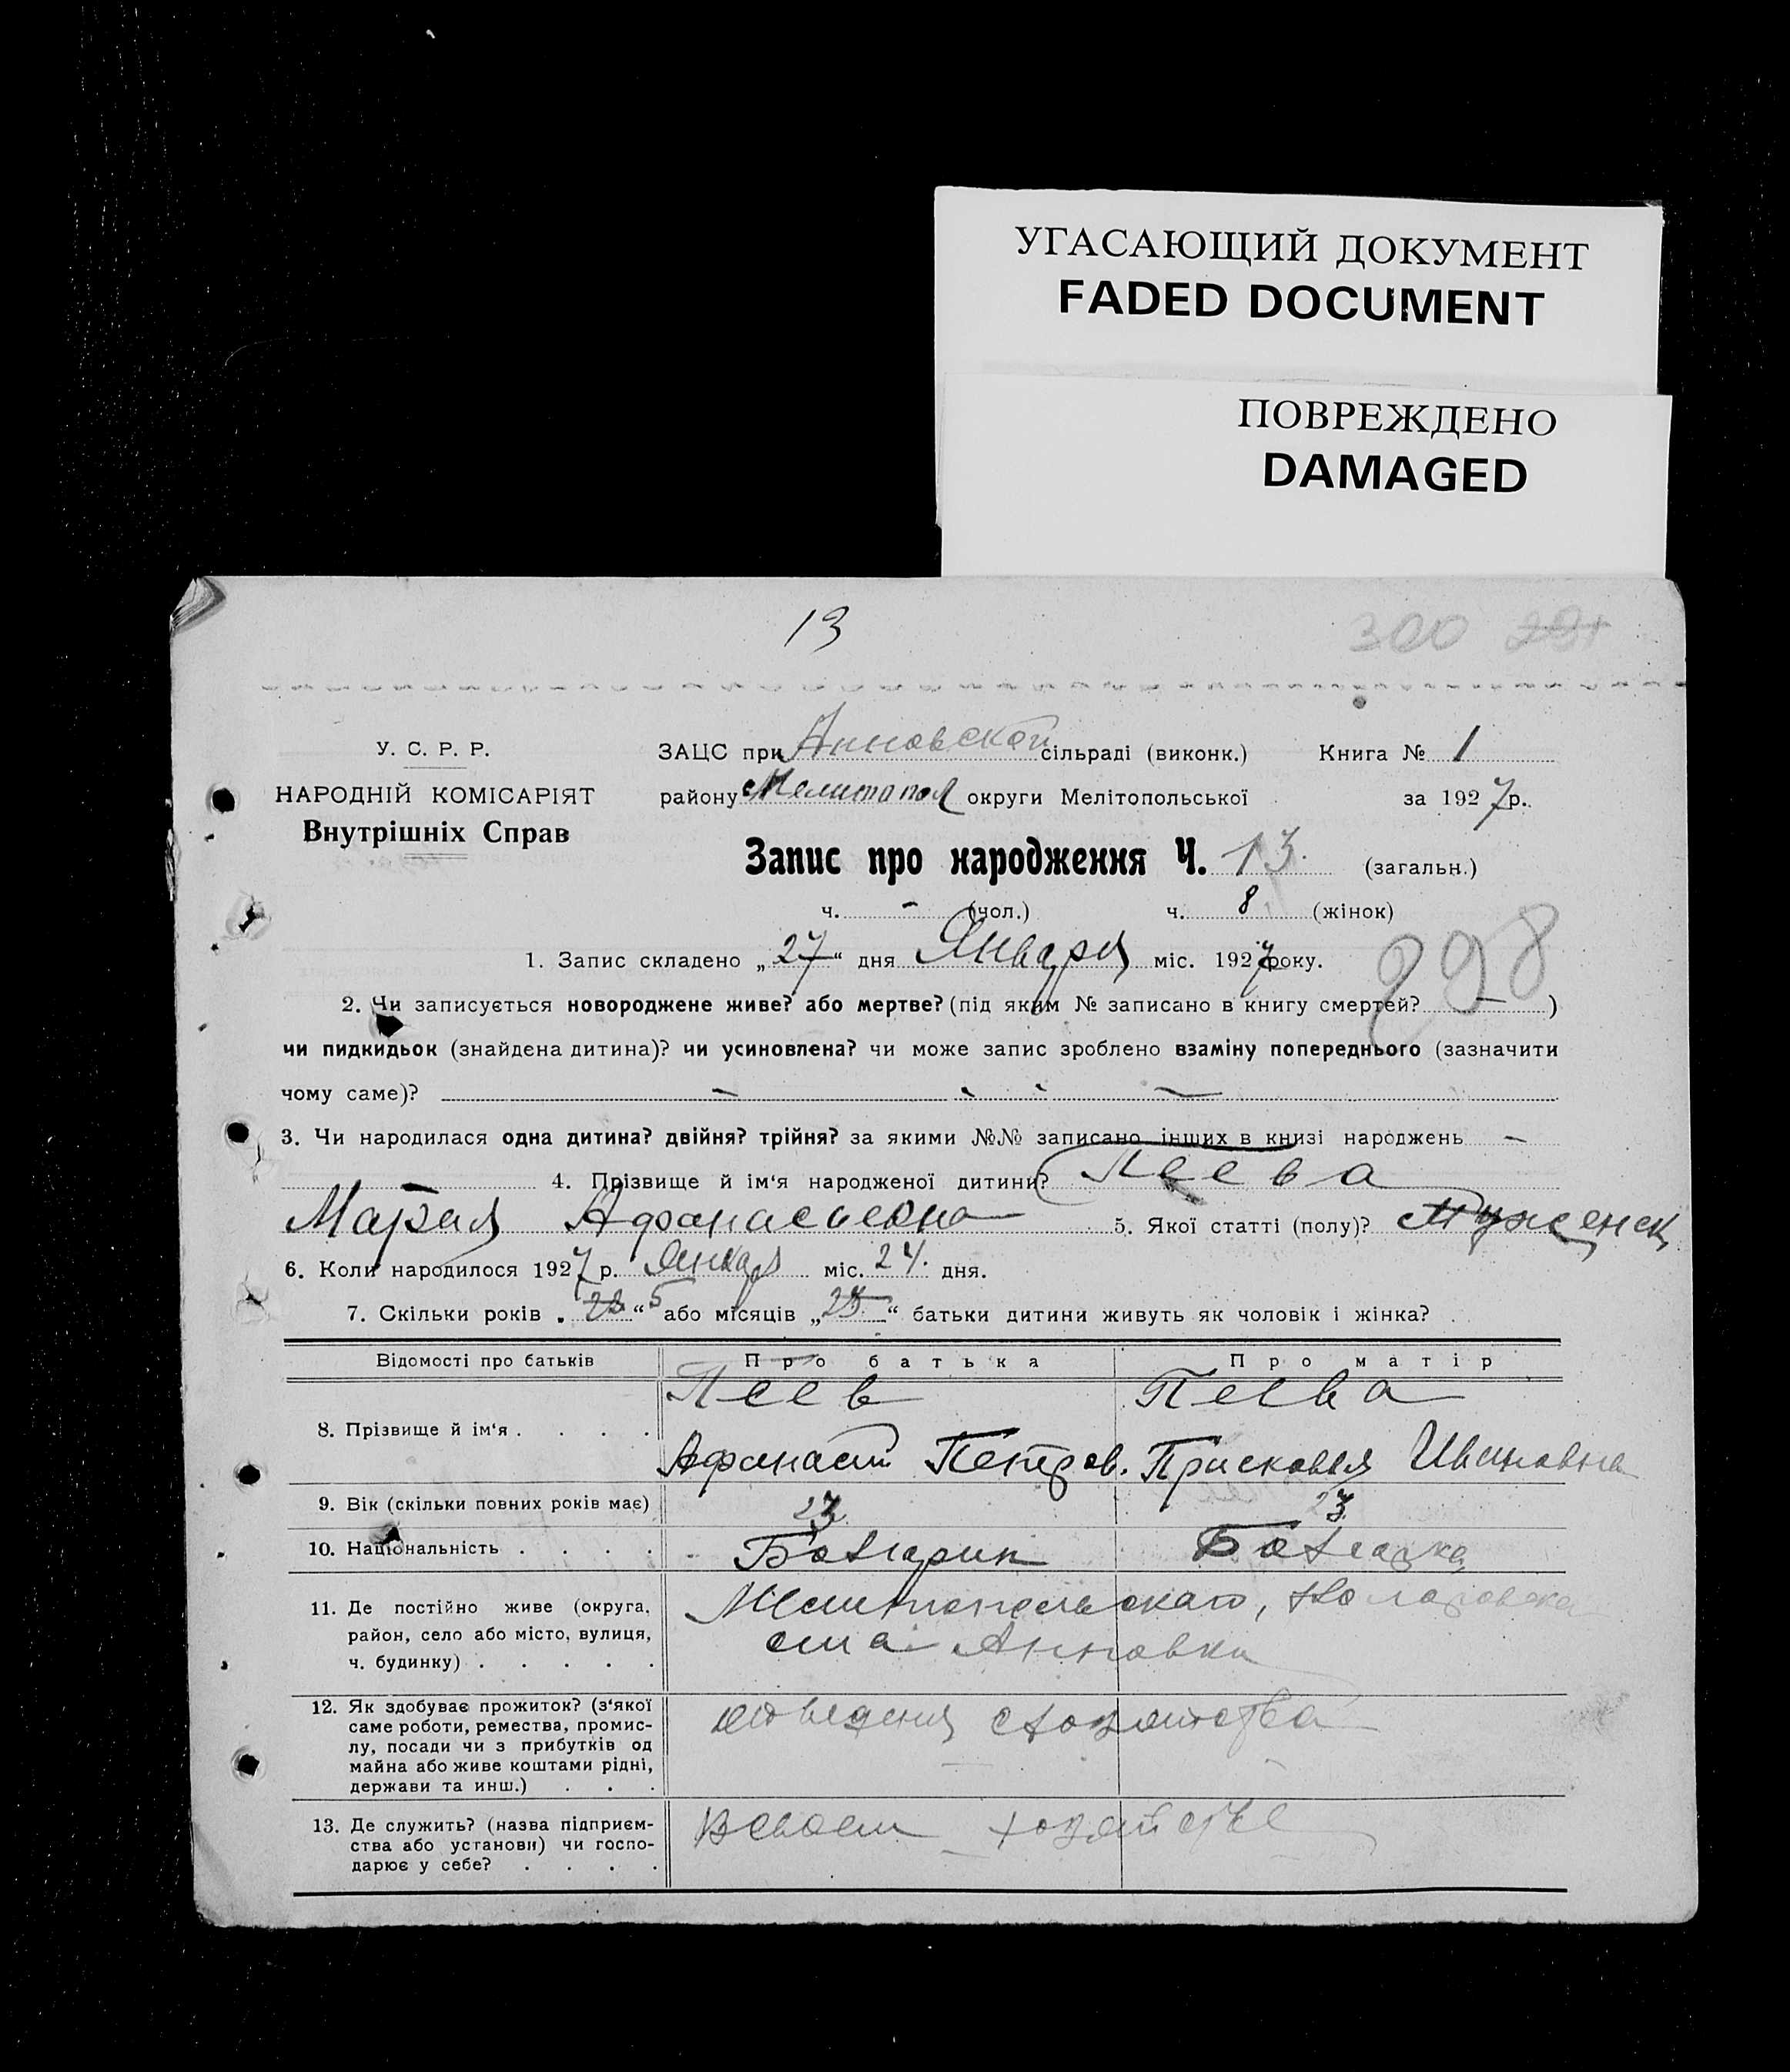 УГАСАЮЩИЙ ДОКУМЕНТ
FADED DOCUMENT
ПОВРЕЖДЕНО
DAMAGED
13
300
У. С. Р. Р.
НАРОДНІЙ КОМІСАРІЯТ
Внутрішніх Справ
ЗАЦС при Анновской сільраді (виконк.) Книга № 1
району Мелитопол округи Мелітопольської за 1927 р.
Запис про народження Ч. 13. (загальн.)
ч. - (чол.) ч. 8 (жінок)
298
1. Запис складено „27“ дня Января міс. 1927 року.
2. Чи записується новороджене живе? або мертве? (під яким № записано в книгу смертей? — )
чи пидкидьок (знайдена дитина)? чи усиновлена? чи може запис зроблено взаміну попереднього (зазначити
чому саме)? —
3. Чи народилася одна дитина? двійня? трійня? за якими №№ записано інших в книзі народжень —
4. Прізвище й ім‘я народженої дитини? Пеева
Мария Афанасьевна 5. Якої статті (полу)? женск
6. Коли народилося 1927 р. Январ міс. 24. дня.
7. Скільки років „ 5 “ або місяців „ “ батьки дитини живуть як чоловік і жінка?
Відомості про батьків Про батька Про матір
8. Прізвище й ім‘я . . . . Пеев Пеева
Афанасий Петров. Присковья Ивановна
9. Вік (скільки повних років має) 23 23
10. Національність . . . . Болгарин Болгарка
11. Де постійно живе (округа, район, село або місто, вулиця, ч. будинку) . . . . . Мелитопольскаго,
села Анновки
12. Як здобуває прожиток? (з‘якої саме роботи, ремества, промислу, посади чи з прибутків од майна або живе коштами рідні, держави та инш.) . . .
13. Де служить? (назва підприємства або установи) чи господарює у себе? . . . . В своем хозяйстве